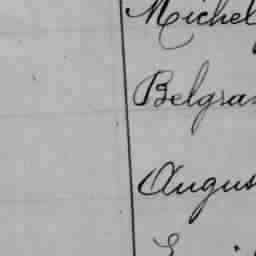 Michel
Belgra
Augus